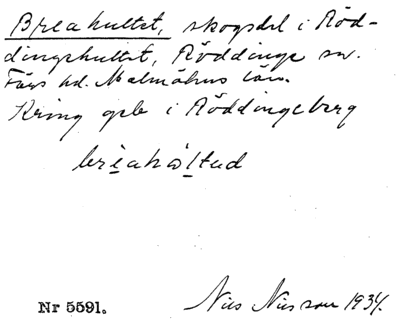 Breahultet, skogsdel i Röd-
dingehultet, Röddinge sn.
Färs hd. Malmöhus län.
Kring grb i Röddingeberg
briahultud
Nr 5591.
Nils Nilsson 1934.